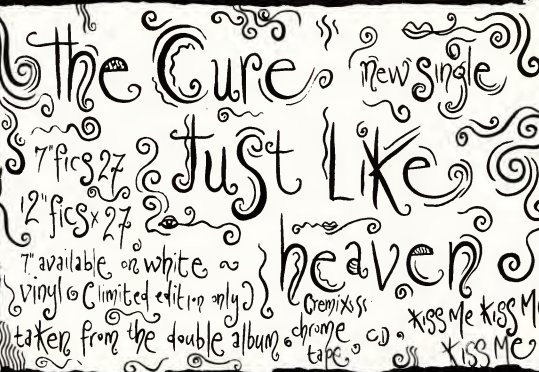 the Cure new single
Just Like heaven
7" fics 27
12" ficsx 27
7" available on white
vinyl (limited edition only)
taken from the double album. chrome
tape. CD.
Kiss Me Kiss M
Kiss Me